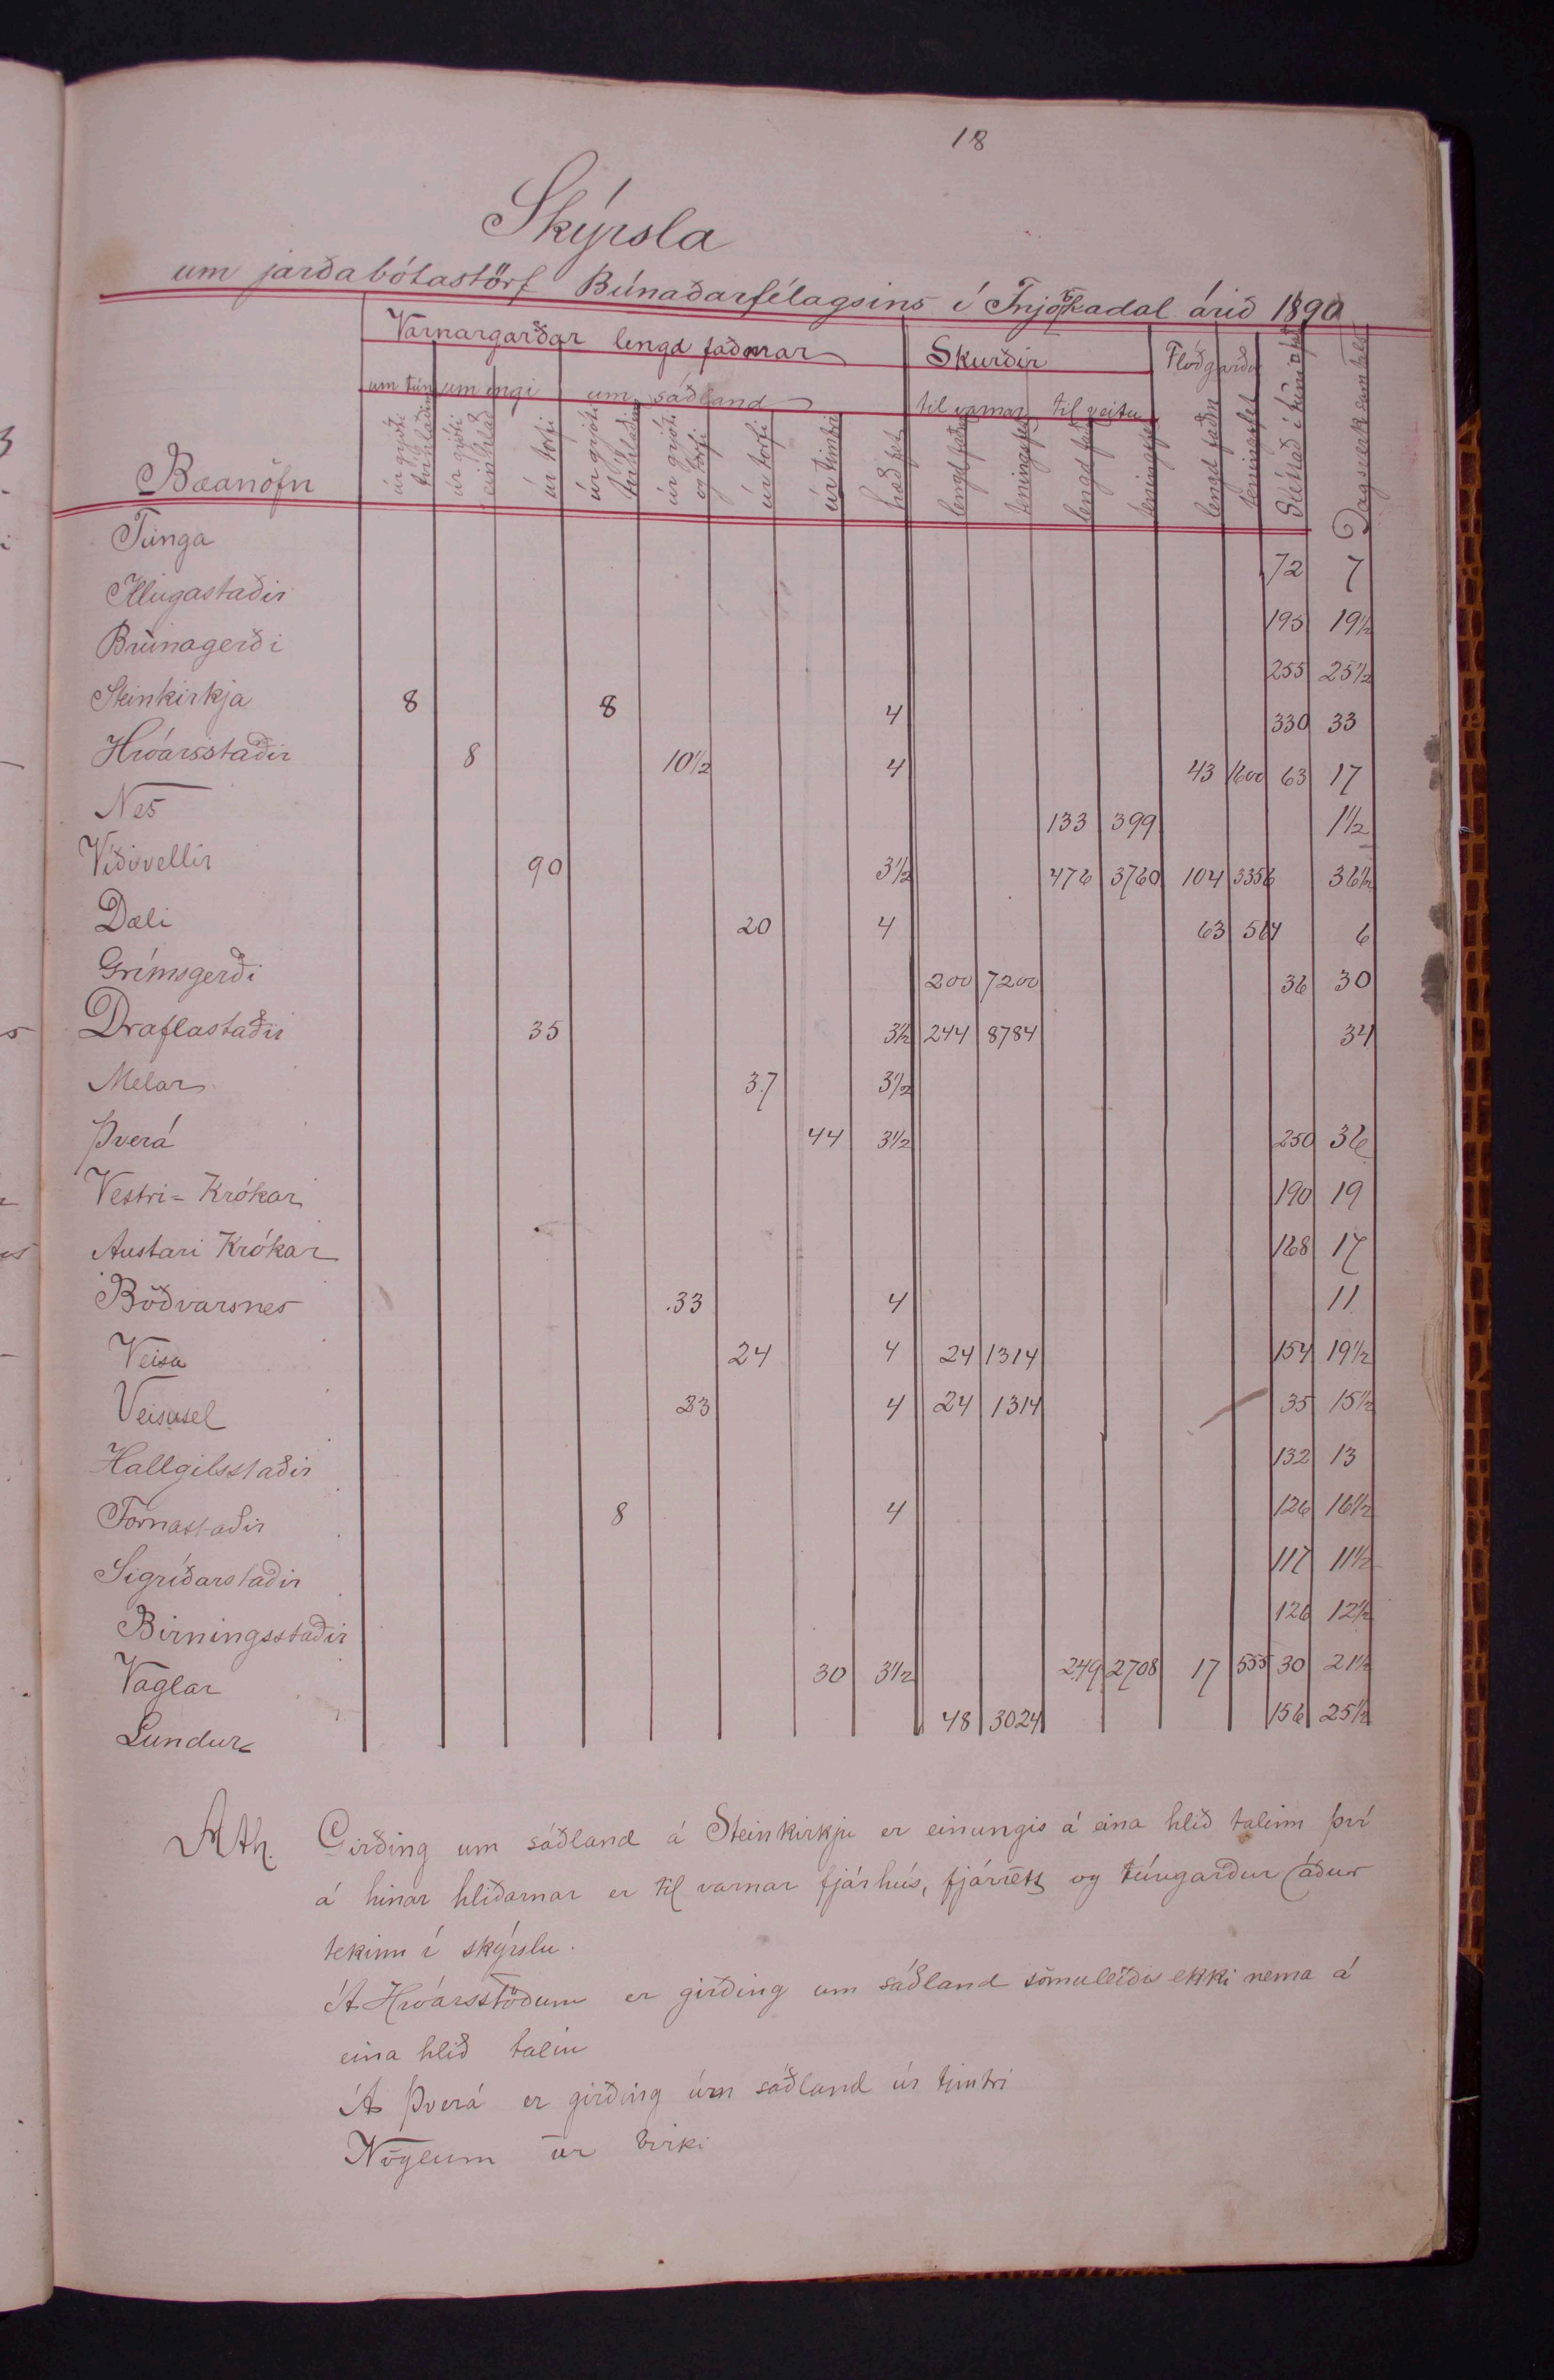 18
Skýrsla
um jarðabótastörf Búnaðarfélagsins í Fnjóskadal árið 1890
Varnargarðar lengd faðmar Skurðir Flóðgarðar
um tún um engi um sáðland til varnar til veitu
Bæanöfn úr grjóti tvíhlaðinn úr grjóti einhlað úr torfi úr grjóti tvíhlaðinn úr grjóti og torfi úr torfi úr timbri hæð fet lengd faðm teningsfet lengd faðm teningsfet lengd faðm teningsfet Sléttað í túni Dagsverk samtals
Tunga 72 7
Illugastaðir 195 19 1/2
Brúnagerði 255 25 1/2
Steinkirkja 8 8 4 330 33
Hróarsstaðir 8 10 1/2 4 43 1600 63 17
Nes 133 399 1 1/2
Víðivellir 90 3 1/2 476 3760 104 3356 36 1/2
Dæli 20 4 63 564 6
Grímsgerði 200 7200 36 30
Draflastaðir 35 3 1/2 244 8784 34
Melar 37 3 1/2
Þverá 44 3 1/2 250 36
Vestri-Krókar 190 19
Austari Krókar 168 17
Böðvarsnes 33 4 11
Veisa 24 4 24 1314 154 19 1/2
Veisusel 23 4 24 1314 35 15 1/2
Hallgilsstaðir 132 13
Fornastaðir 8 4 126 16 1/2
Sigríðarstaðir 117 11 1/2
Birningsstaðir 126 12 1/2
Vaglar 30 3 1/2 249 2708 17 555 30 21 1/2
Lundur 48 3024 156 25 1/2
Ath. Girðing um sáðland á Steinkirkju er einungis á eina hlið talinn því
á hinar hliðarnar er til varnar fjárhús, fjárrétt og túngarður áður
tekinn í skýrslu.
Á Hróarsstöðum er girðing um sáðland sömuleiðis ekki nema á
eina hlið talin
Á Þverá er girðing um sáðland úr timbri
Vöglum úr birki